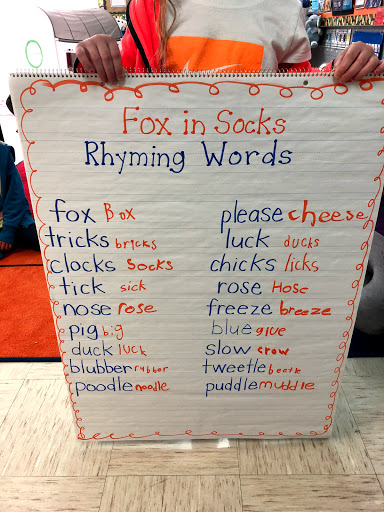 Fox in Socks
Rhyming Words
fox Box
tricks bricks
clocks Socks
tick sick
nose rose
pig big
duck luck
blubber rubber
poodle noodle
please cheese
luck ducks
chicks licks
rose Hose
freeze breeze
blue glue
slow crow
tweetle beetle
puddle muddle